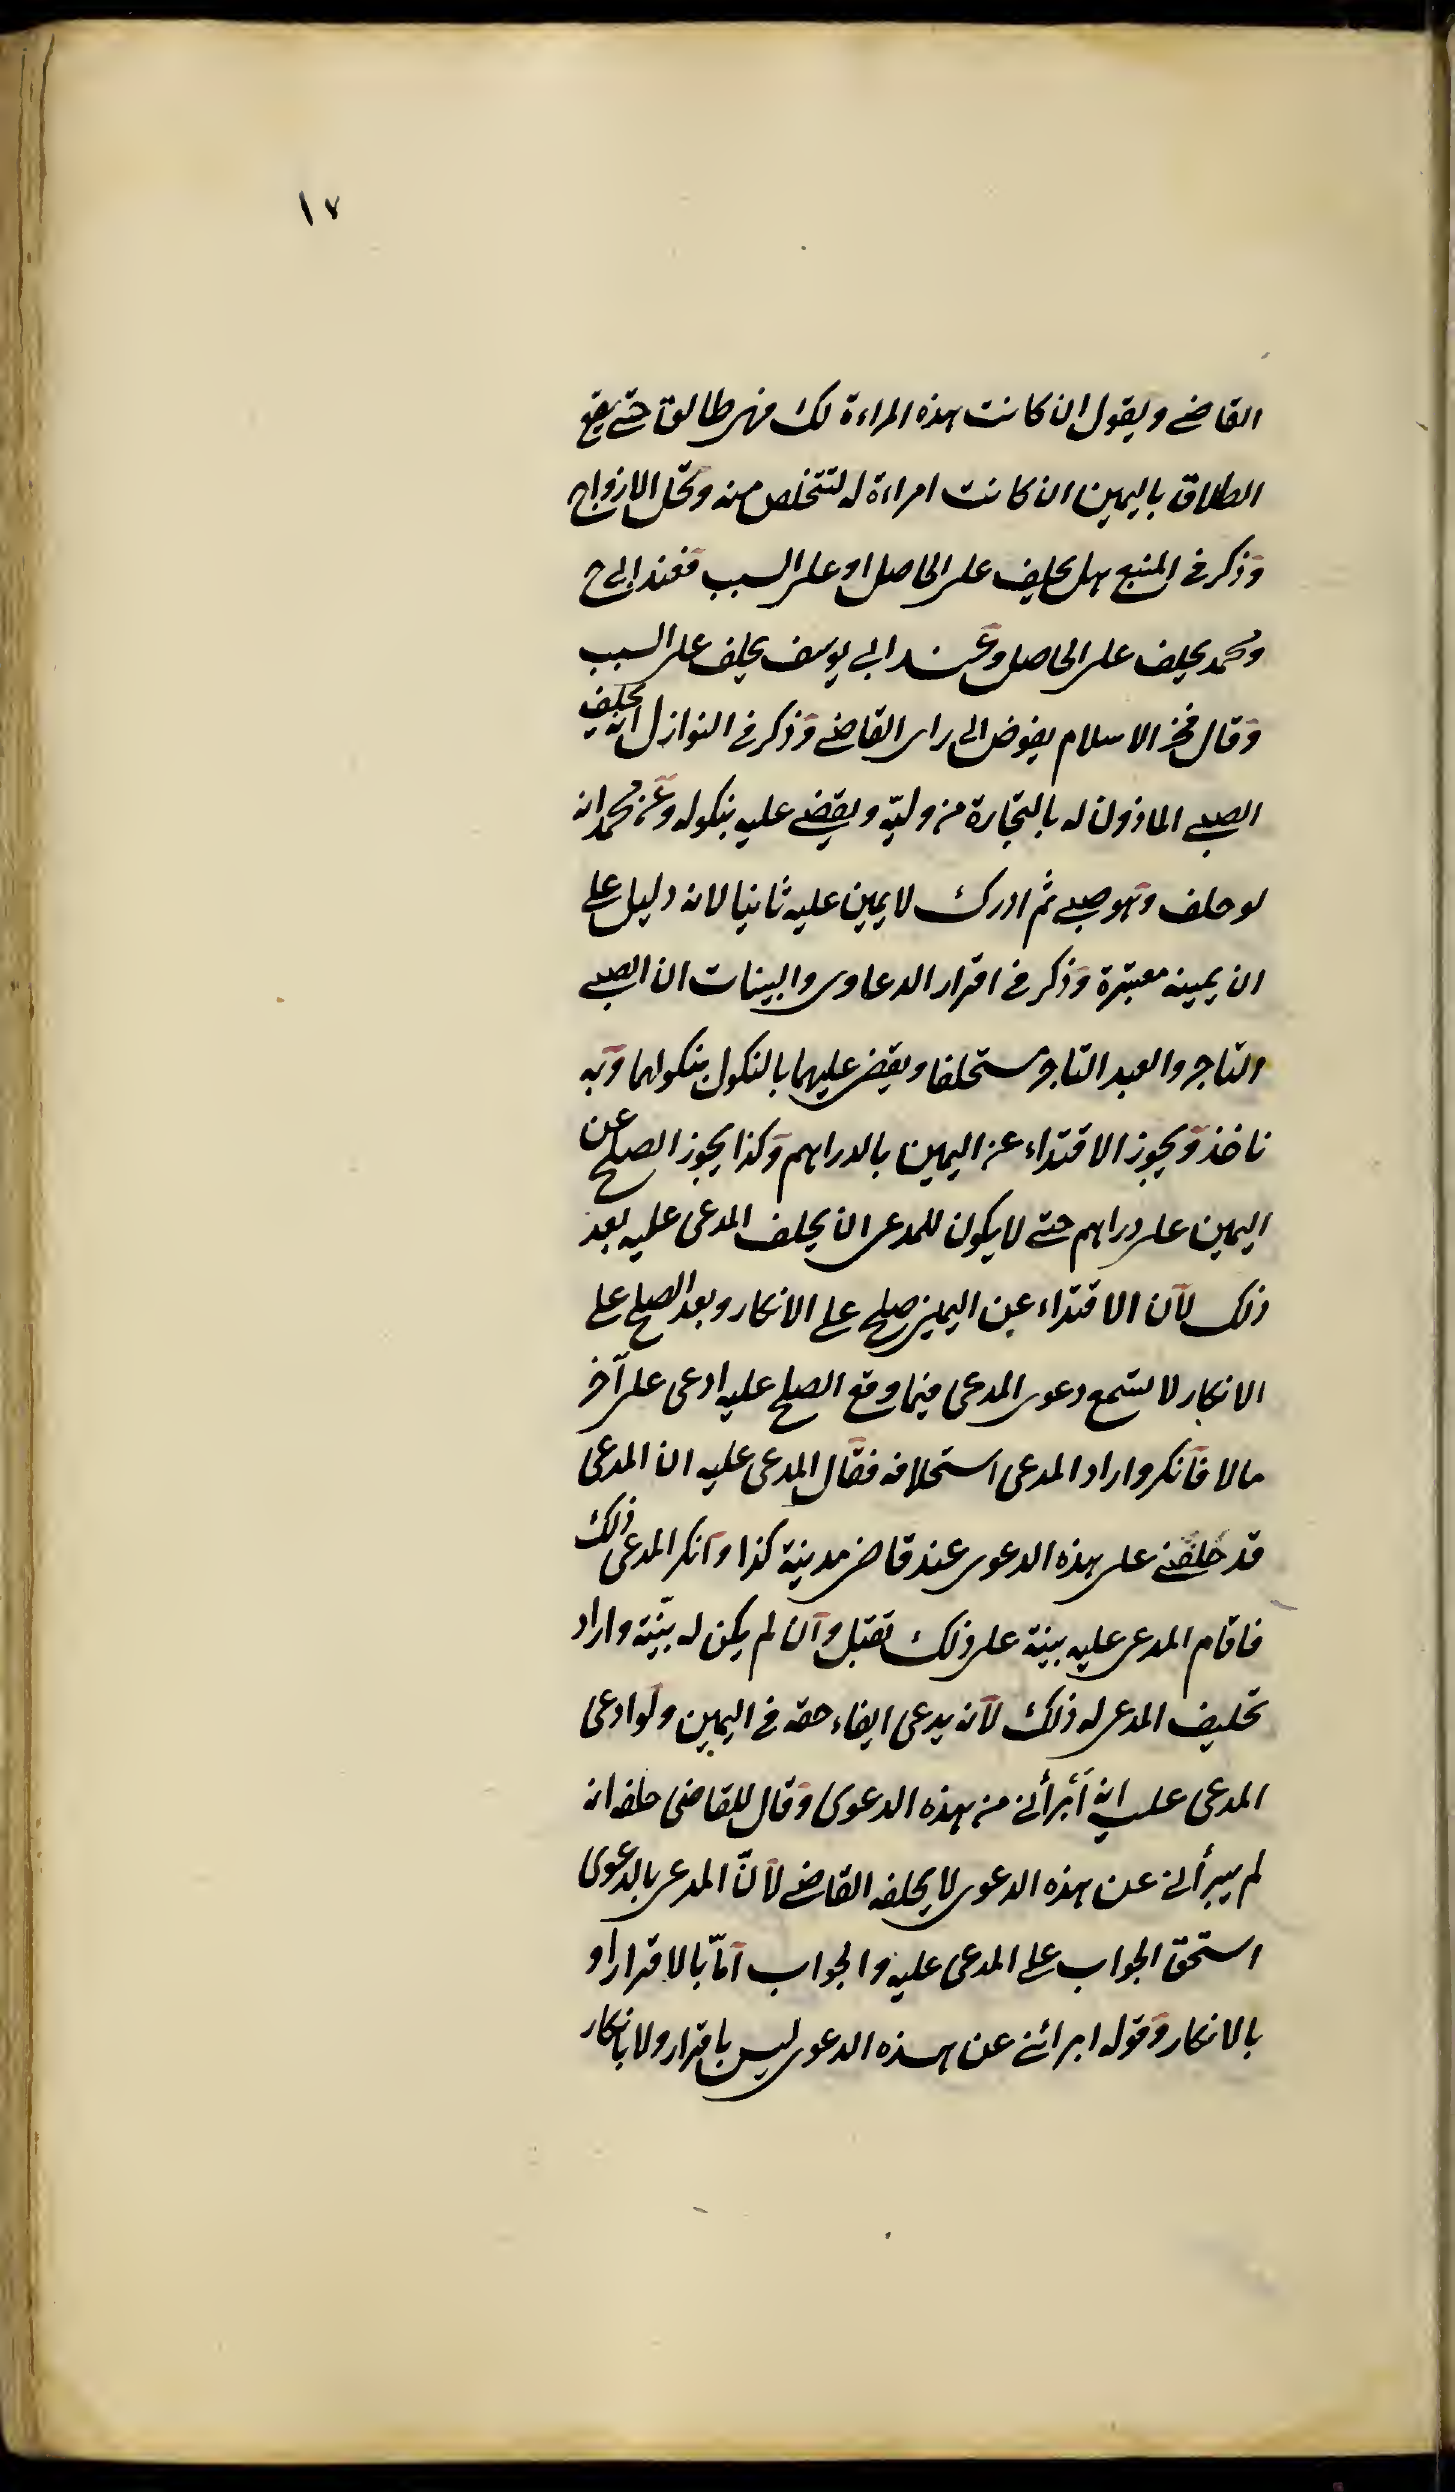 ١٧
القاضى ويقول ان كانت هذه المراءة لك فهى طالق حتى يقع
الطلاق باليمين ان كانت امراءة له لتتخلص منه وتحل للازواج
وذكر فى المنبع هل يحلف على الحاصل او على السبب فعند ابى ح
ومحمد يحلف على الحاصل وعند ابى يوسف يحلف على السبب
وقال فخر الاسلام يفوض الى راى القاضى وذكر فى النوازل انه يحلف
الصبى الماذون له بالتجارة من وليه ويقضى عليه بنكوله وعن محمد انه
لو حلف وهو صبى ثم ادرك لا يمين عليه ثانيا لانه دليل على
ان يمينه معتبرة وذكر فى اقرار الدعاوى والبينات ان الصبى
التاجر والعبد التاجر يستحلفا ويقضى عليهما بالنكول بنكولهما وبه
ناخذ ويجوز الافتداء عن اليمين بالدراهم وكذا يجوز الصلح عن
اليمين على دراهم حتى لا يكون للمدعى ان يحلف المدعى عليه بعد
ذلك لان الافتداء عن اليمين صلح على الانكار وبعد الصلح على
الانكار لا تسمع دعوى المدعى فيما وقع الصلح عليه ادعى على آخر
مالا فانكر واراد المدعى استحلافه فقال المدعى عليه ان المدعى
قد حلفنى على هذه الدعوى عند قاضى مدينة كذا وانكر المدعى ذلك
فاقام المدعى عليه بينة على ذلك تقبل وان لم يكن له بيّنة واراد
تحليف المدعى له ذلك لانه يدعى ايفاء حقه فى اليمين ولو ادعى
المدعى عليه انه أبرأنى من هذه الدعوى وقال للقاضى حلفه انه
لم يبرأنى عن هذه الدعوى لا يحلفه القاضى لانّ المدعى بالدعوى
استحق الجواب على المدعى عليه والجواب امّا بالاقرار او
بالانكار وقوله ابرائنى عن هذه الدعوى ليس باقرار ولا بانكار